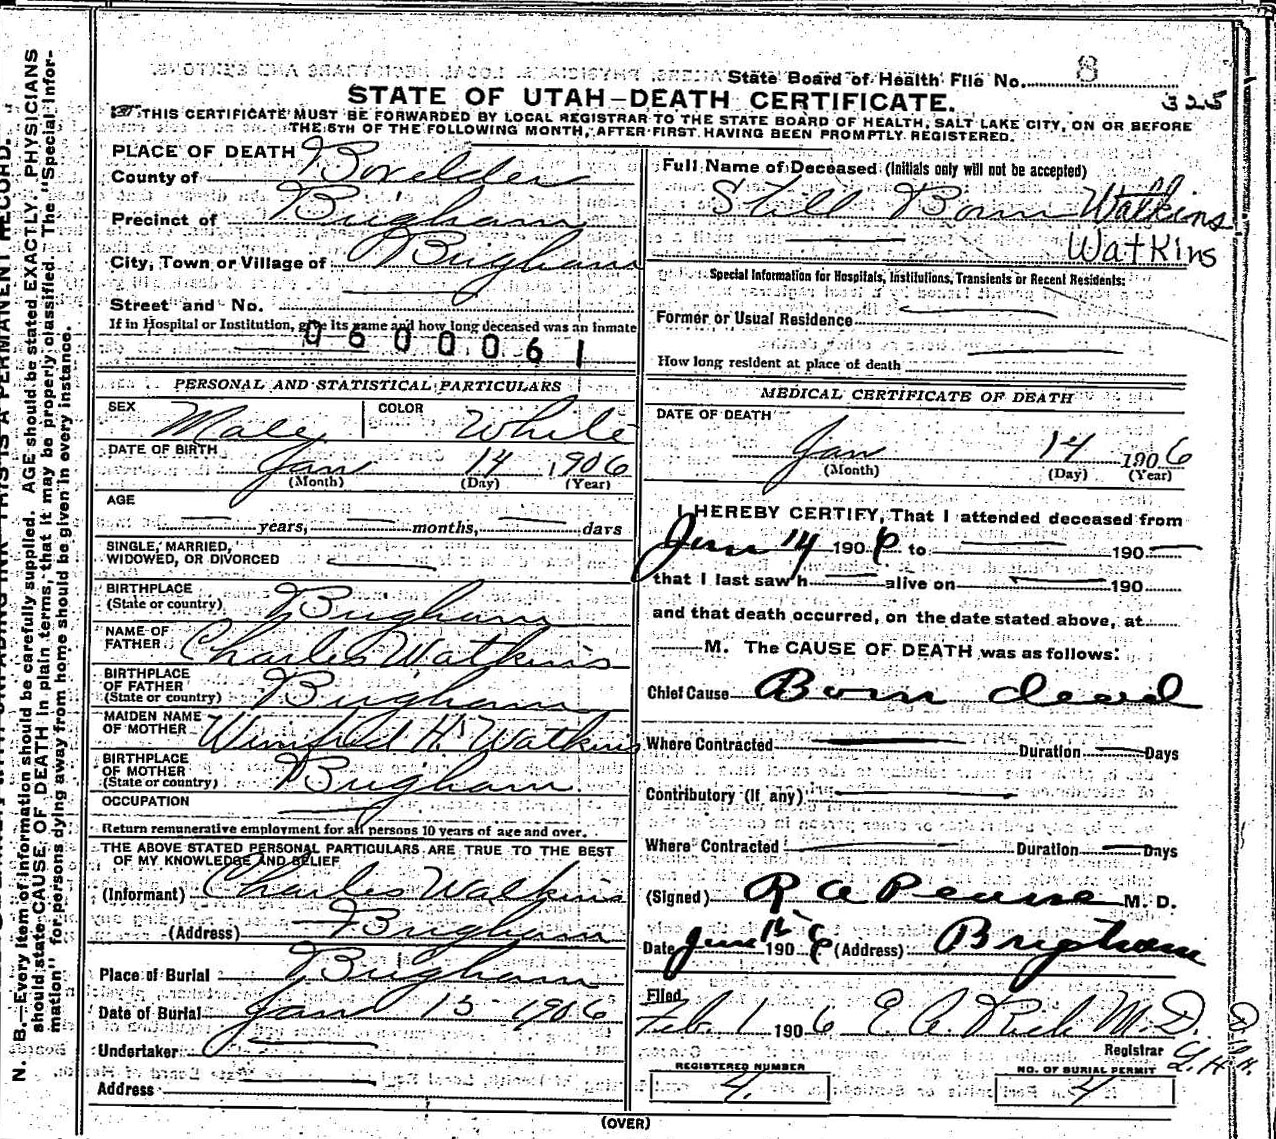 State Board of Health File No. 8
325
STATE OF UTAH—DEATH CERTIFICATE.
THIS CERTIFICATE MUST BE FORWARDED BY LOCAL REGISTRAR TO THE STATE BOARD OF HEALTH, SALT LAKE CITY, ON OR BEFORE
THE 5TH OF THE FOLLOWING MONTH, AFTER FIRST HAVING BEEN PROMPTLY REGISTERED.
PLACE OF DEATH
County of Boxelder
Precinct of Brigham
City, Town or Village of Brigham
Street and No.
If in Hospital or Institution, give its name and how long deceased was an inmate
0600061
PERSONAL AND STATISTICAL PARTICULARS
SEX Male COLOR White
DATE OF BIRTH Jan 14 1906
(Month) (Day) (Year)
AGE
years, months, days
SINGLE, MARRIED,
WIDOWED, OR DIVORCED
BIRTHPLACE
(State or country) Brigham
NAME OF
FATHER Charles Watkins
BIRTHPLACE
OF FATHER
(State or country) Brigham
MAIDEN NAME
OF MOTHER Winifred H. Watkins
BIRTHPLACE
OF MOTHER
(State or country) Brigham
OCCUPATION
Return remunerative employment for all persons 10 years of age and over.
THE ABOVE STATED PERSONAL PARTICULARS ARE TRUE TO THE BEST
OF MY KNOWLEDGE AND BELIEF
(Informant) Charles Watkins
(Address) Brigham
Place of Burial Brigham
Date of Burial Jan 15 1906
Undertaker
Address
Full Name of Deceased (Initials only will not be accepted)
Still Born Watkins
Watkins
Special Information for Hospitals, Institutions, Transients or Recent Residents:
Former or Usual Residence
How long resident at place of death
MEDICAL CERTIFICATE OF DEATH
DATE OF DEATH
Jan 14 1906
(Month) (Day) (Year)
I HEREBY CERTIFY, That I attended deceased from
Jan 14 1906 to 190
that I last saw h alive on 190
and that death occurred, on the date stated above, at
M. The CAUSE OF DEATH was as follows:
Chief Cause Born dead
Where Contracted Duration Days
Contributory (If any)
Where Contracted Duration Days
(Signed) R A Pearse M. D.
Date 1906 (Address) Brigham
Filed
Feb 1 1906 E. A. Rich M.D.
Registrar
REGISTERED NUMBER
4.
NO. OF BURIAL PERMIT
4
(OVER)
N. B.—Every item of information should be carefully supplied. AGE should be stated EXACTLY. PHYSICIANS
should state CAUSE OF DEATH in plain terms, that it may be properly classified. The "Special Infor-
mation" for persons dying away from home should be given in every instance.